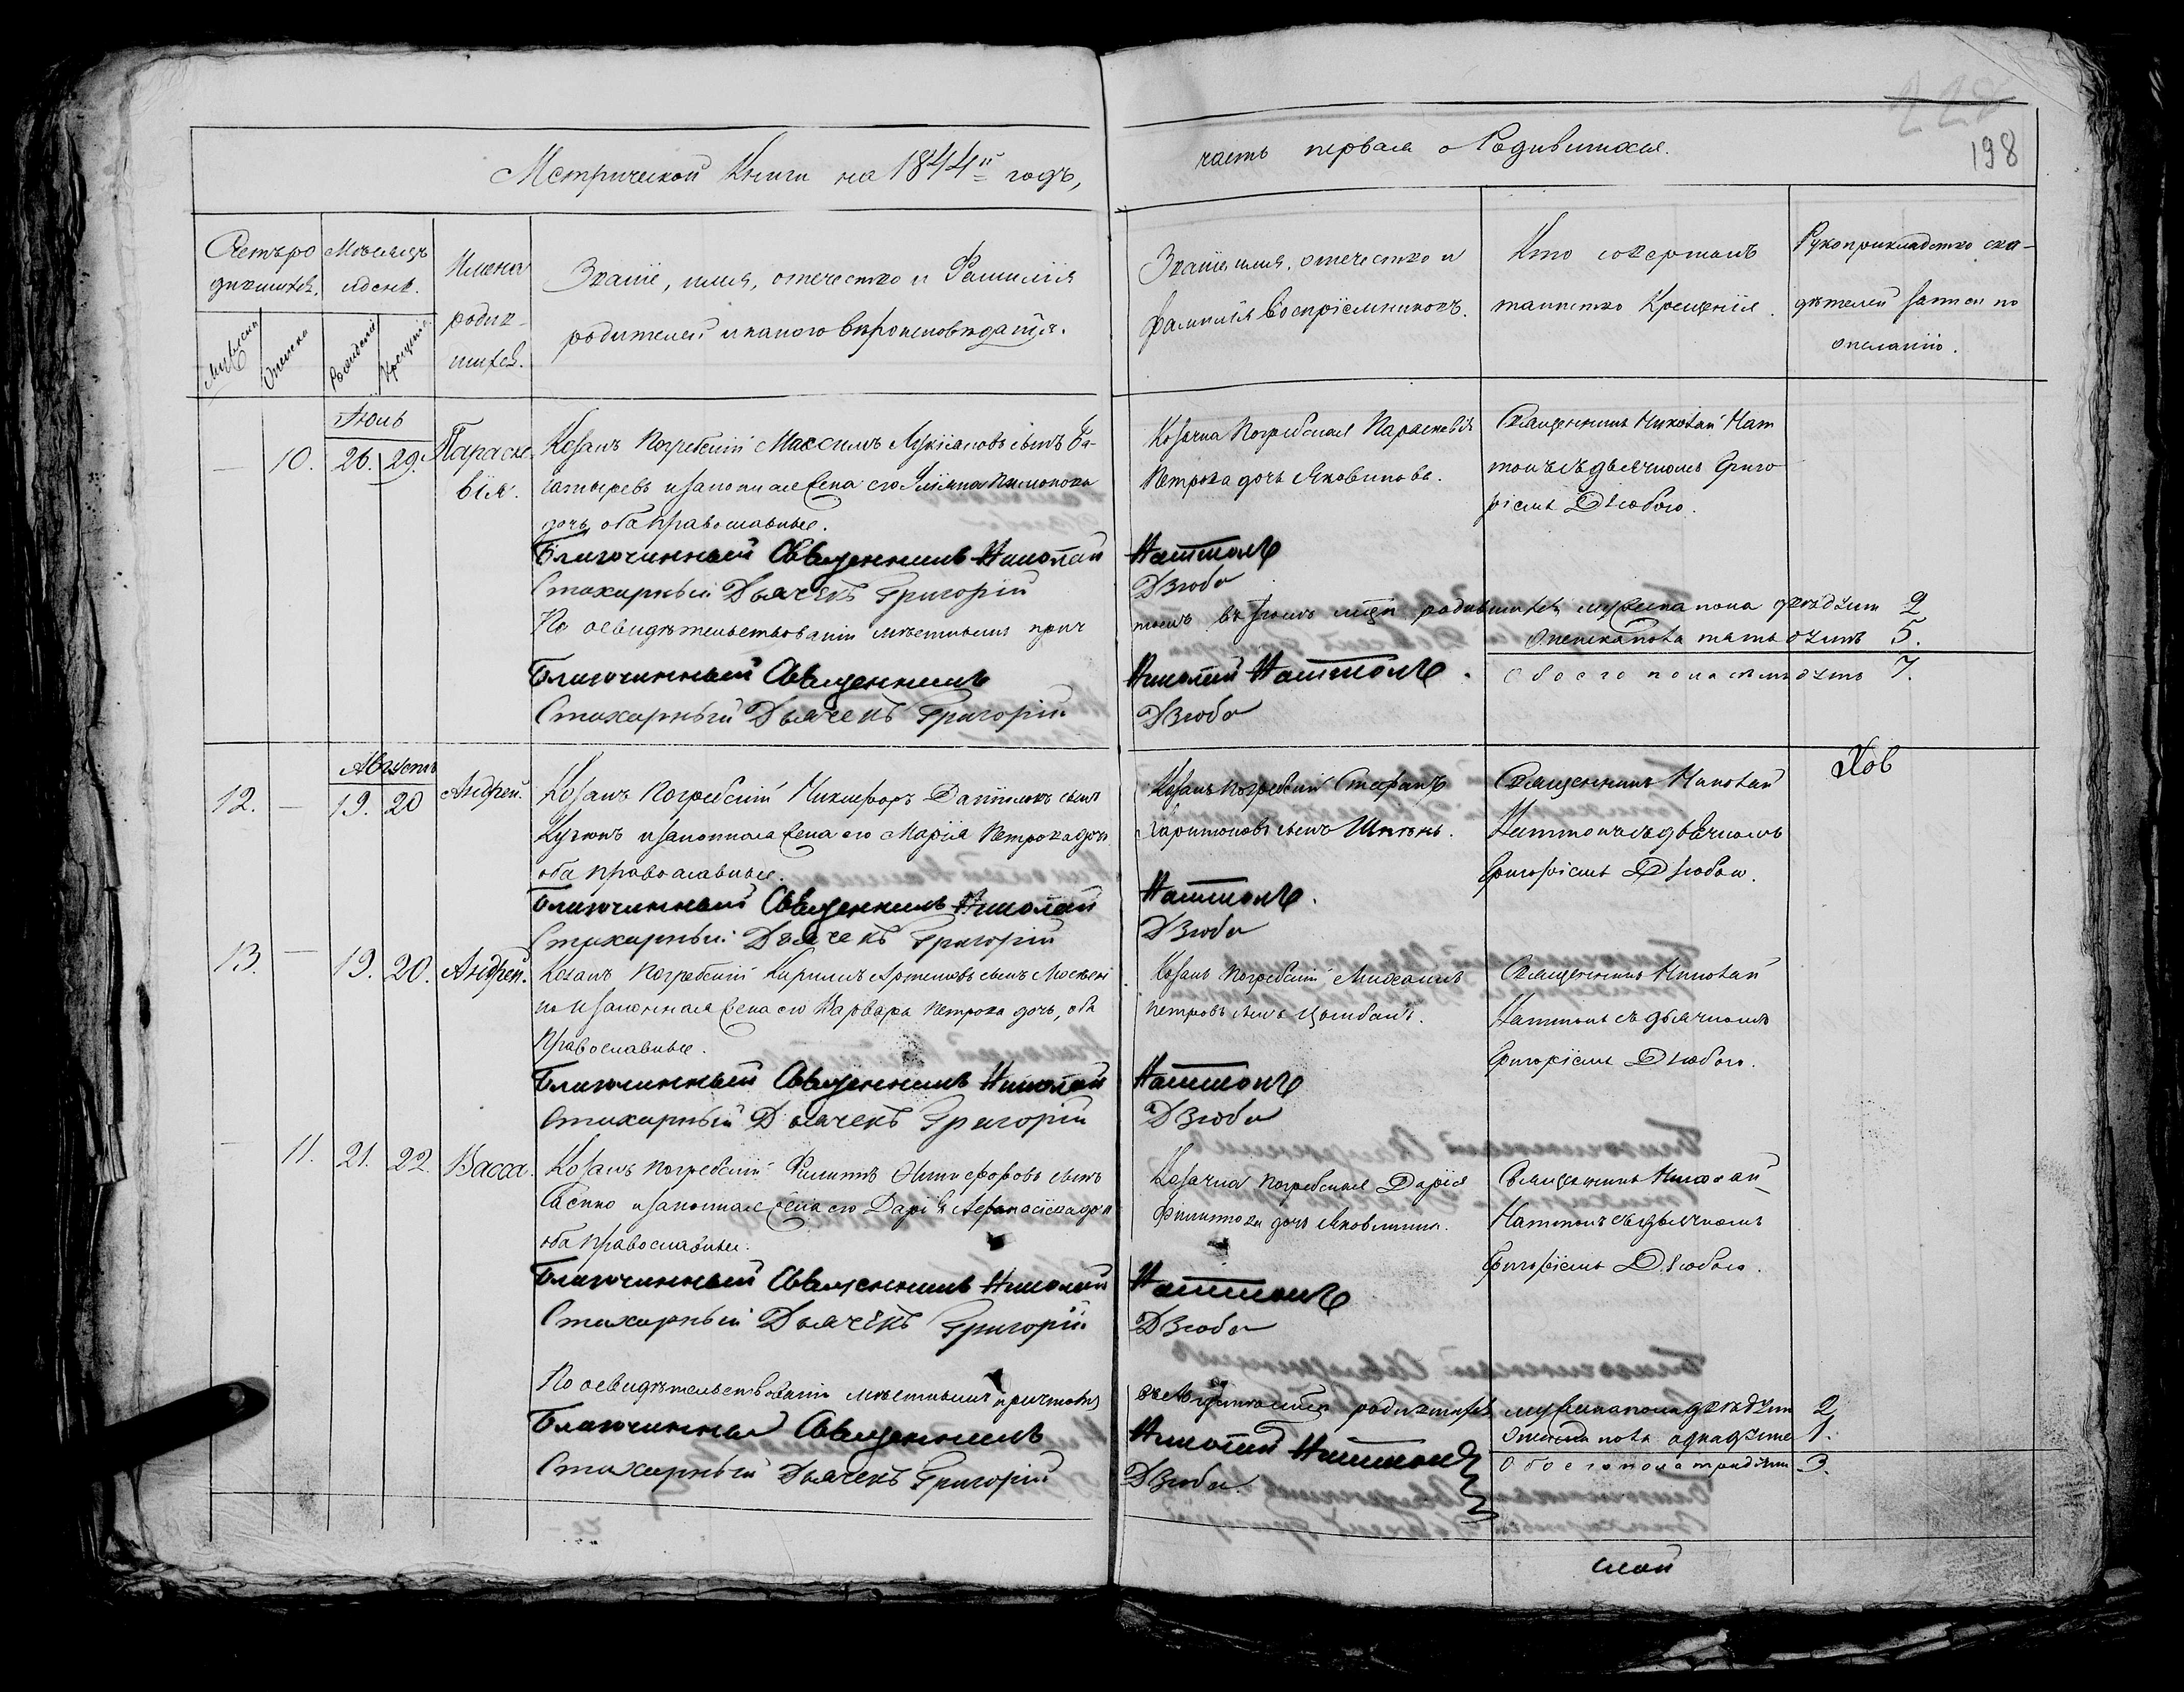 Метрической Книги на 1844й годъ,
часть первая о Родившихся.
198
Счетъ ро
дившихся.
Мѣсяцъ
и день.
Имена
родив-
шихся.
Званіе, имя, отечество и Фамилія
родителей и какого вѣроисповѣданія.
Званіе имя, отечество и
фамилія Воспріемниковъ.
Кто совершалъ
таинство Крещенія.
Рукоприкладство сви-
дѣтелей записи по
желанію.
Мужеска
Женска
Рожденія
Крещенія
Іюль
— 10. 26. 29. Параске-
вія.
Козакъ Погребскій Максимъ Лукіановъ сынъ Ба-
гатыревъ и законная жена его
дочь, оба православные.
Козачка Погребская Параскевія
Петрова дочь Яковинова.
Священникъ Николай Нат
тонъ съ дьячкомъ Григо
ріемъ Дзюбою.
Благочинный Священникъ Николай Наттонъ
Стихарный Дьячекъ Григорій Дзюба
По освидѣтельствованіи мѣстнымъ прич
томъ въ Іюлѣ м̃цѣ родившихся мужеска пола душъ 2
Женска пола пять душъ 5.
Обоего пола семь душъ 7.
Благочинный Священникъ Николай Наттонъ.
Стихарный Дьячекъ Григорій Дзюба
Августъ
12. — 19. 20 Андрей.
Козакъ Погребскій Никифоръ Даніиловъ сынъ
и законная жена его Марія Петрова дочь
оба православные.
Козакъ Погребскій Стефанъ
Харитоновъ сынъ
Священникъ Николай
Наттонъ съ дьячкомъ
Григоріемъ Дзюбою.
Благочинный Священникъ Николай Наттонъ.
Стихарный Дьячекъ Григорій Дзюба
13. — 19. 20. Андрей.
Козакъ Погребскій Кириллъ Артемовъ сынъ
и законная жена его Варвара Петрова дочь, оба
Православные.
Козакъ Погребскій Михаилъ
Петровъ сынъ Цымбалъ.
Священникъ Николай
Наттонъ съ дьячкомъ
Григоріемъ Дзюбою.
Благочинный Священникъ Николай Наттонъ
Стихарный Дьячекъ Григорій Дзюба
— 11. 21. 22. Васса.
Козакъ Погребскій Филиппъ Никифоровъ сынъ
и законная жена его Дарія дочь
оба Православные.
Козачка Погребская Дарія
Филиппова дочь
Священникъ Николай
Наттонъ съ дьячкомъ
Григоріемъ Дзюбою.
Благочинный Священникъ Николай Наттонъ
Стихарный Дьячёкъ Григорій Дзюба
По освидѣтельствованіи мѣстнымъ причтомъ
родившихся мужеска пола душъ 2
Женска пола одна душа 1.
Обоего пола три души 3.
Благочинный Священникъ Николай Наттонъ
Стихарный Дьячекъ Григорій Дзюба.